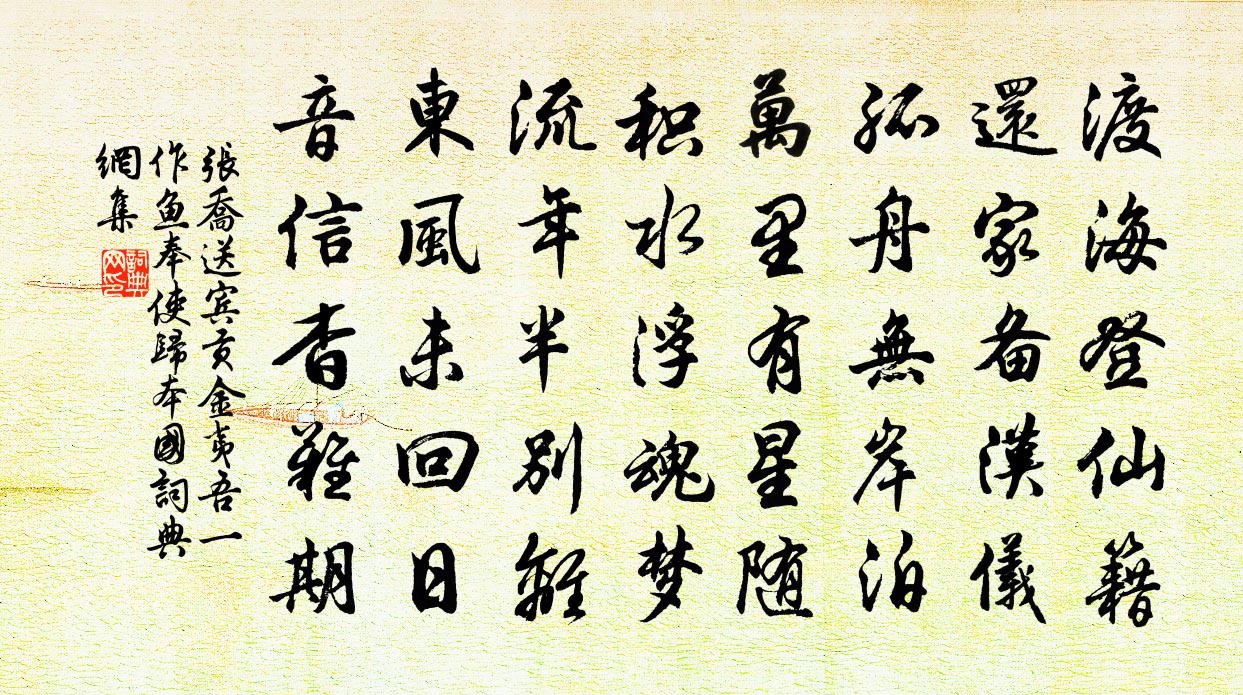 渡海登仙籍
還家备漢儀
孤舟無岸泊
萬里有星随
积水浮魂梦
流年半別離
東風未回日
音信杳難期
張喬送宾貢金夷吾一
作鱼奉使歸本國詞典
網集
詞典网印